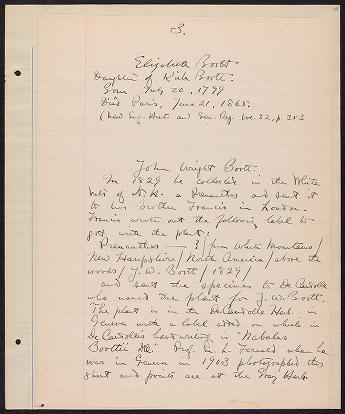 3.
Elizabeth Boott.
Daughter of Kirk Boott.
Born July 20, 1799
Died Paris, June 21, 1865.
(New Eng. Hist. and Gen. Reg. vol. 32, p. 353
John Wright Boott.
In 1829 he collected in the White
Mts of N. H. a Prenanthes and sent it
to his brother Francis in London.
Francis wrote out the following label to
go with the plant:
Prenanthes — ? / from White Mountains /
New Hampshire / North America / above the
woods / J. W. Boott / 1829 /
and sent the specimens to De Candolle
who named the plant for J. W. Boott.
The plant is in the DeCandolle Herb. in
Geneva with a label on which in
DeCandolle's handwriting is "Nabalus
Boottii Prof. M. L. Fernald when he
was in Geneva in 1903 photographed this
sheet and prints are at the Gray Herb.